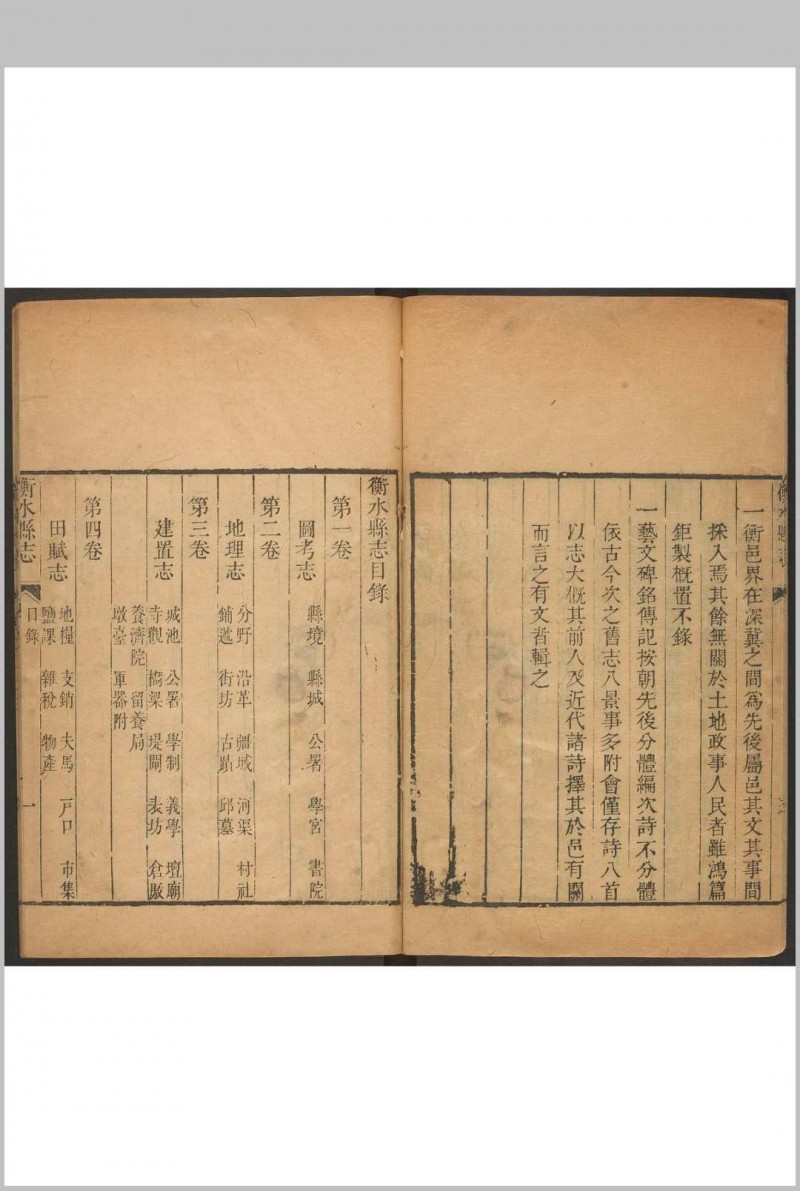 衡水縣志
一衡邑界在深冀之間爲先後屬邑其文其事間
採入焉其餘無關於土地政事人民者雖鴻篇
鉅製槪置不錄
一藝文碑銘傳記按朝先後分體編次詩不分體
依古今次之舊志八景事多附會僅存詩八首
以志大槪其前人及近代諸詩擇其於邑有關
而言之有文者輯之
衡水縣志目錄
第一卷
圖考志
縣境 縣城 公署 學宮 書院
第二卷
地理志
分野 沿革 疆域 河渠 村社
鋪遞 街坊 古蹟 邱墓
第三卷
建置志
城池 公署 學制 義學 壇廟
寺觀 橋梁 堤閘 表坊 倉厫
養濟院 留養局
墩臺 軍器附
第四卷
田賦志
地糧 支銷 夫馬 戸口 市集
鹽課 雜稅 物產
衡水縣志
目錄
一